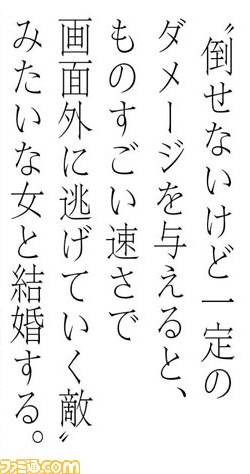 〝倒せないけど一定の
ダメージを与えると、
ものすごい速さで
画面外に逃げていく敵〟
みたいな女と結婚する。
ファミ通.com